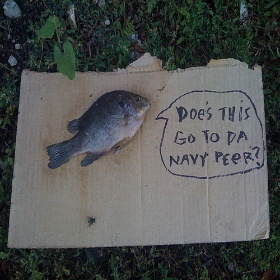 DOES THIS
GO TO DA
NAVY PEER?